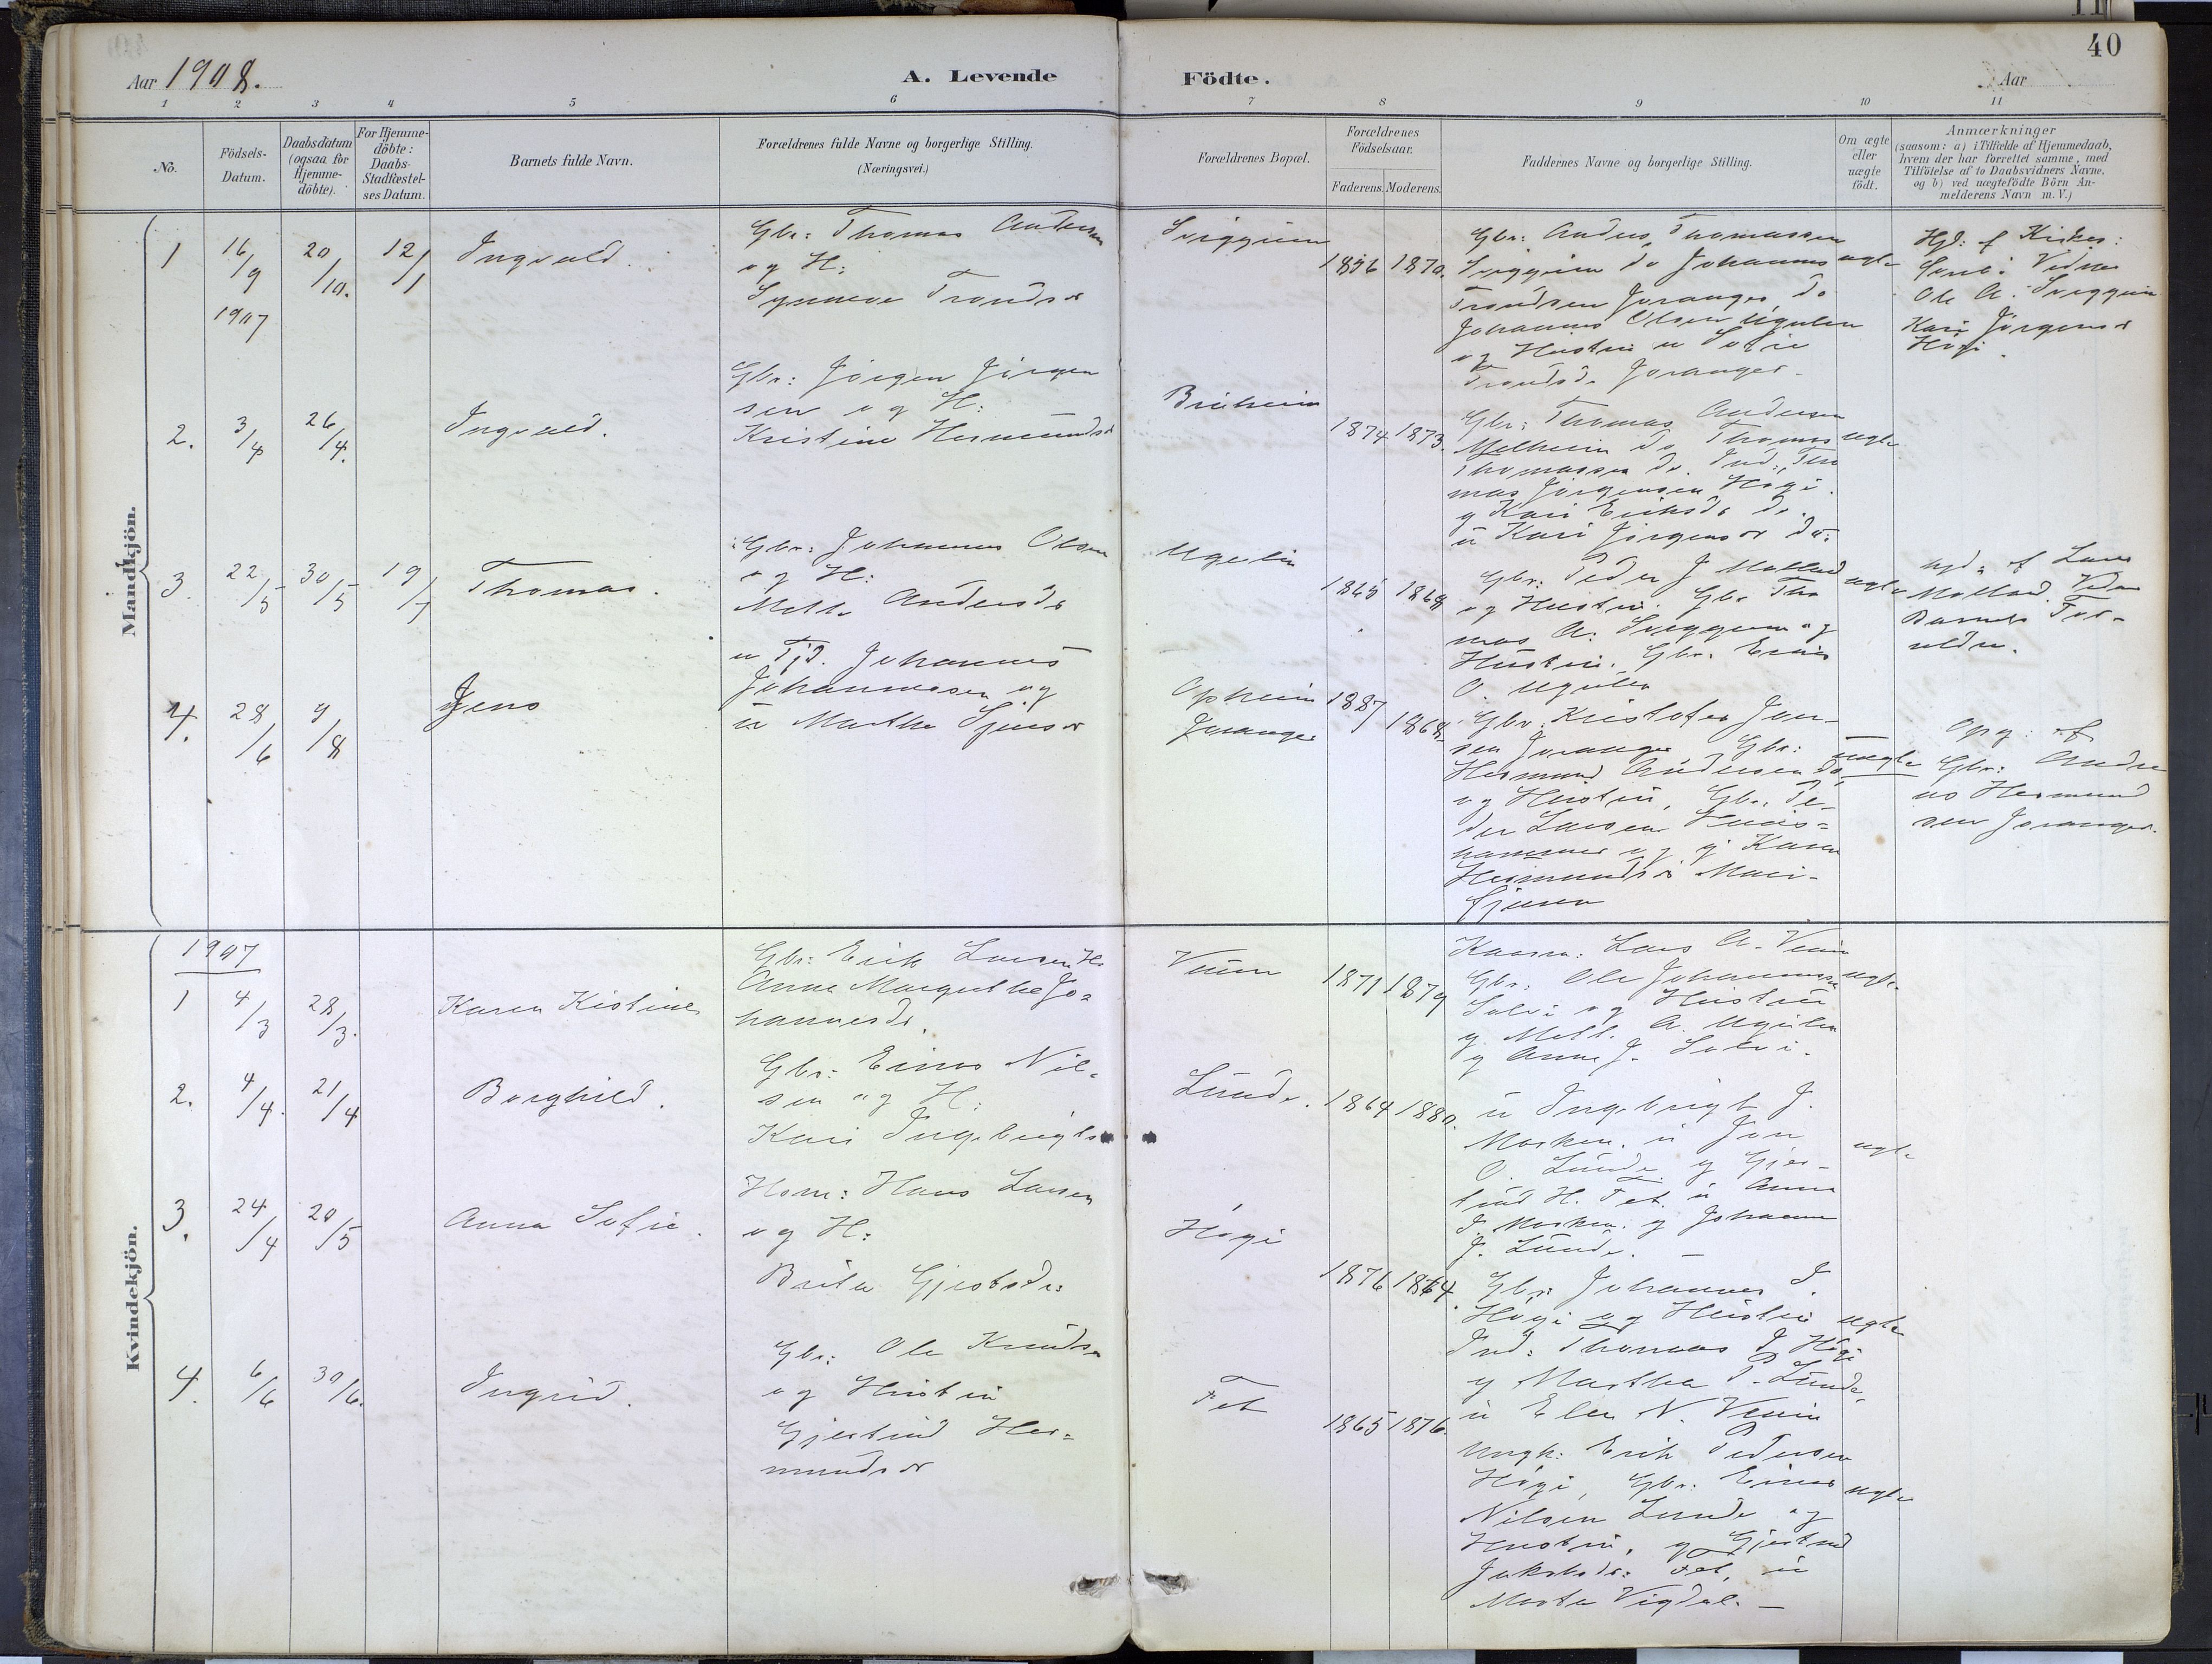 40
Aar 1908.
A. Levende
Födte.
Aar
1 2 3 4 5 6 7 8 9 10 11
No.
Födsels-
Datum.
Daabsdatum
(ogsaa for
Hjemme-
döbte).
For Hjemme-
döbte:
Daabs-
Stadfæstel-
ses Datum.
Barnets fulde Navn.
Forældrenes fulde Navne og borgerlige Stilling.
(Næringsvei.)
Forældrenes Bopæl.
Forældrenes
Födselsaar.
Faderens. Moderens.
Faddernes Navne og borgerlige Stilling.
Om ægte
eller
uægte
födt.
Anmærkninger
(saasom: a) i Tilfælde af Hjemmedaab,
hvem der har forrettet samme, med
Tilföielse af to Daabsvidners Navne.
og b) ved uægtefödte Börn An-
melderens Navn m.V.)
Mandkjön.
1
16/9
1907
20/10.
12/1
Ingvald.
Gbr: Thomas Andersen
og H:
Synneve Trondsdr
Sviggum
1856 1870.
Gbr. Anders Thomassen
Sviggum do Johannes
Trondsen Joranger do
Johannes Olsen Ugulen
og Hustru u Sofie
Trondsdr Joranger.
ægte
Hjd: af Kirkes:
Vidner
Ole A. Sviggum
Kari Jörgensdr
Högi.
2.
3/4
26/4.
Ingvald.
Gbr: Jörgen Jörgen
sen og H:
Kristine Hermundsdr
Bruheim
1874 1873.
Gbr: Thomas Andersen
Melheim do Thomas
Thomassen do. Ind: Tho
mas Jörgensen Högi.
g Kari Eriksdr do.
u Kari Jörgensdr do.
ægte
3.
22/5
30/5
19/7
Thomas.
Gbr: Johannes Olsen
og H:
Mette Andersdr
Ugulen
1865 1868
Gbr: Peder J Molland
og Hustru. Gbr Tho
mas A: Sviggum og
Hustru. Gbr. Einar
O. Ugulen
ægte
Hjd: af Lars
Molland. Vidner
Barnets For-
ældre.
4.
28/6
9/8
Jens
u Tjd. Johannes
Johannessen og
u Martha Sjursdr
Opheim
Joranger
1887
1868.
Gbr. Kristofer Jon-
sen Joranger Gbr:
Hermund Andersen do
og Hustru, Gbr. Pe-
der Larsen
og g Karen
Hermundsdr Mari-
fjæren
uægte
Opg: af
Gbr: Andre
as Hermund
sen Joranger.
Kvindekjön.
1907
1
4/3
28/3.
Karen Kistine
Gbr: Erik Larsen H.
Anna Margrethe Jo-
hannesdr.
Veum
1871 1879
Lars A. Veum
Gbr: Ole Johannessen
Solvi og Hustru
g. Mett. A. Ugulen
g Anna J. Solvi.
ægte
2.
4/4.
21/4
Borghild.
Gbr: Einar Nil-
sen og H:
Kari Ingebrigtsdr
Lunde.
1864 1880.
u Ingebrigt J.
Morken. u Jon
O. Lunde g Gjer-
trud H. Fet. u Anna
J. Morken. g Johanne
J. Lunde. –
ægte
3.
24/4
20/5
Anna Sofie.
Hsm: Hans Larsen
og H:
Brita Gjertsdr:
Högi
1876 1864.
Gbr: Johannes J.
Högi og Hustru
Ind: Thomas J. Högi
g Martha P. Lunde,
u Elen N. Veum
ægte
4.
6/6
30/6.
Ingrid.
Gbr: Ole Knudsen
og Hustru
Gjertrud Her-
mundsdr
Fet
1865 1876.
Ungk: Erik Pedersen
Högi, Gbr: Einar
Nilsen Lunde og
Hustru, g Gjertrud
Jakobsdr: Fet, u
Marta Vigdal. –
ægte